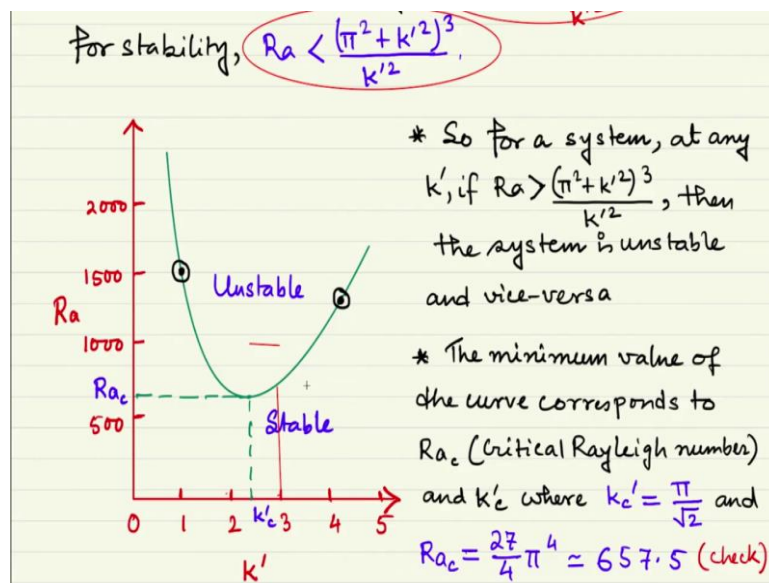 for stability, Ra < (π² + k'²)³ / k'²
2000
1500
1000
500
Ra
Ra_c
Unstable
Stable
0 1 2 k'_c 3 4 5
k'
* So for a system, at any
k', if Ra > (π² + k'²)³ / k'², then
the system is unstable
and vice-versa
* The minimum value of
the curve corresponds to
Ra_c (Critical Rayleigh number)
and k'_c where k_c' = π/√2 and
Ra_c = 27/4 π⁴ ≃ 657.5 (check)